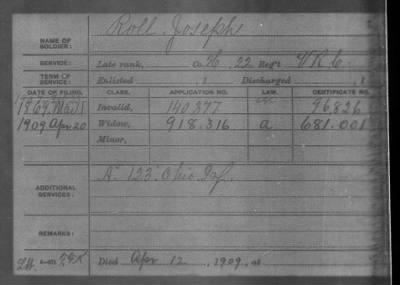 NAME OF SOLDIER: Roll Joseph
SERVICE: Late rank, Co. H, 22 Reg't V R C
TERM OF SERVICE: Enlisted , 1 Discharged , 1
DATE OF FILING. CLASS. APPLICATION NO. LAW. CERTIFICATE NO.
1869 Invalid, 140.377 96826
1909 Apr 20 Widow, 918.316 a 681.001
Minor,
ADDITIONAL SERVICES: A 123 Ohio Inf.
REMARKS:
Died Apr 12, 1909, at